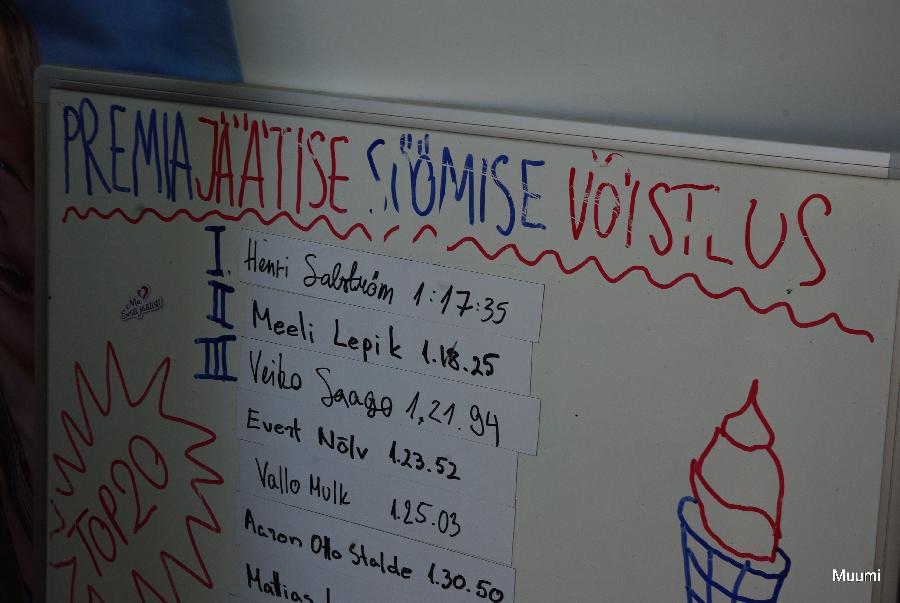 PREMIA JÄÄTISE SÖÖMISE VÕISTLUS
I Henri Salström 1:17:35
II Meeli Lepik 1.18.25
III Veiko Saago 1,21.94
Evert Nõlv 1.23.52
Vallo Mulk 1.25.03
Aaron Otto Stalde 1.30.50
Mattias
TOP 20
Muumi